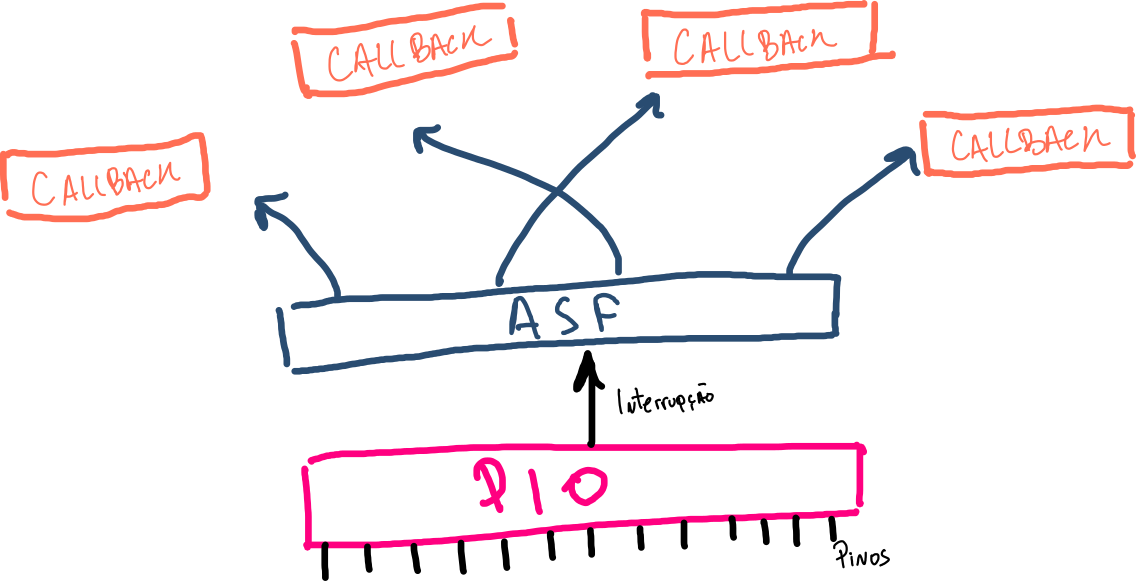 CALLBACK
CALLBACK
CALLBACK
CALLBACK
ASF
Interrupção
PIO
PINOS